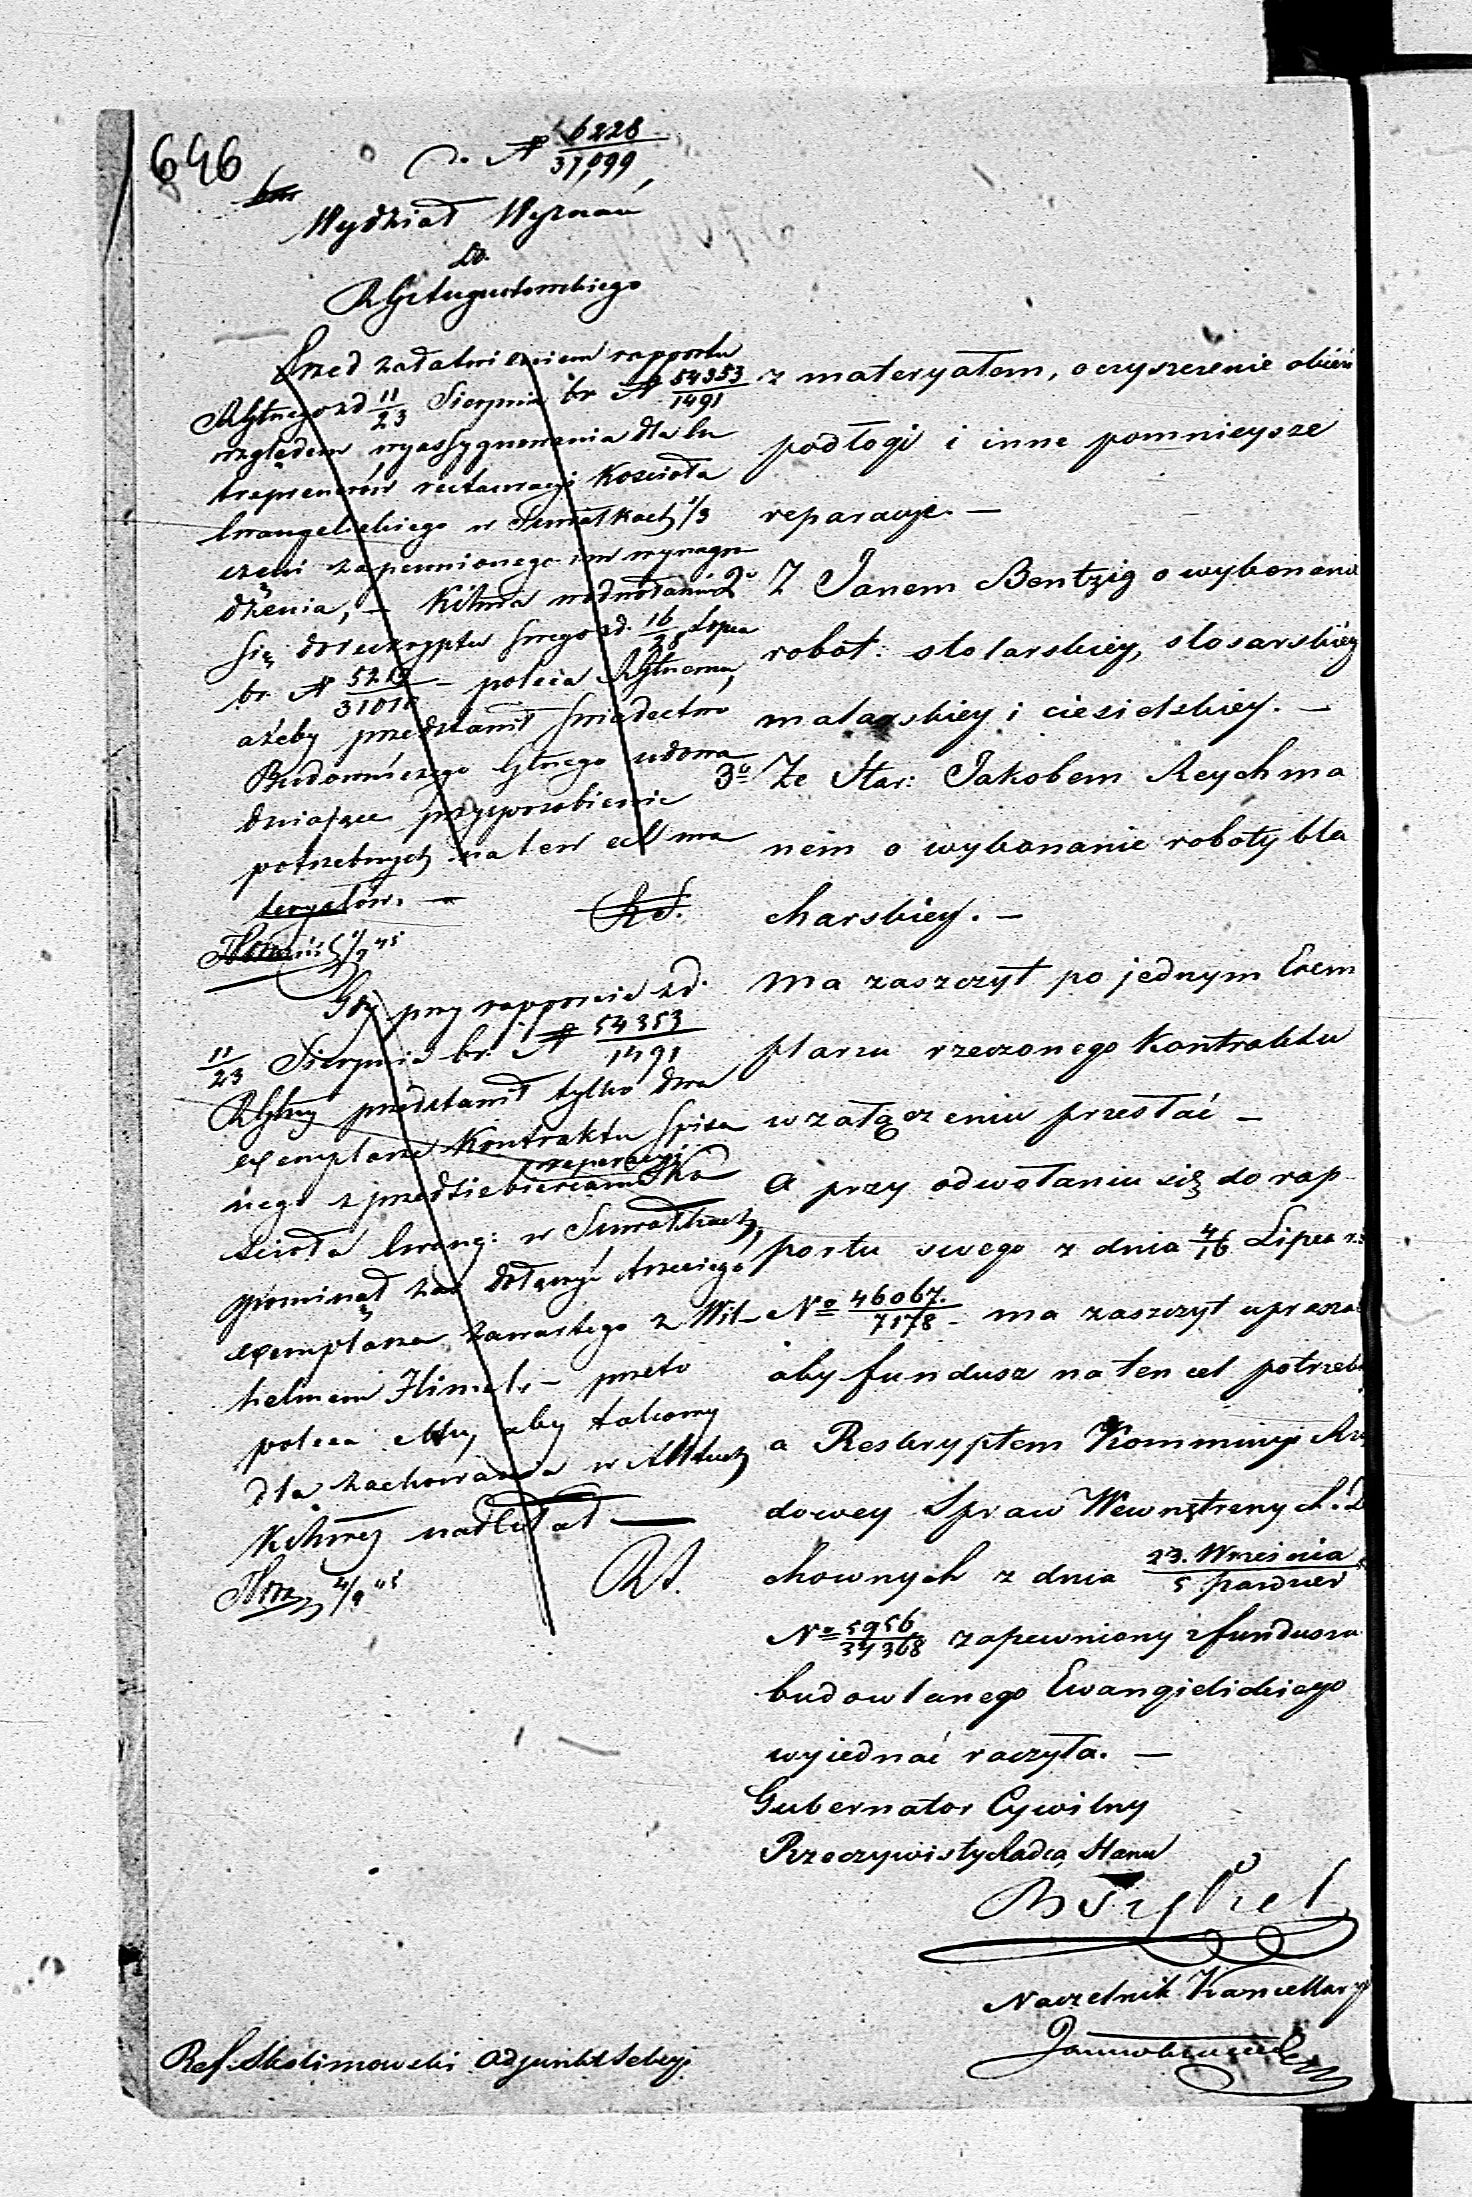 646
N 6228/31,099
Wydział Wyznań
Do
RGAugustowskiego
Przed załatwieniem rapportu
RGłnego z d 11/23 Sierpnia br N 54353/1491
względem wyassygnowania dla
treprenerów restauracyi Kościoła
Ewangelickiego w Suwałkach 1/3
części zapewnionego im wynagro
dzenia, – 
się do reskryptu swego z d. 16/28 Lipca
br. N – poleca RGłnemu,
ażeby przedstawił świadectwo
Budowniczego Głnego udowa
dniające przysposobienie
potrzebnych na ten cel ma
teryałów. –
RS.
Gdy przy rapporcie z d.
11/23 Sierpnia br. N 54353/1491
RGłny przedstawił tylko dwa
exemplarze Kontraktu spisa
nego z przedsiebiercami
reperacyi Ko
ścioła Ewang: w Suwałkach,
pominął zaś dołączyć trzeciego
exemplarza zawartego z Wil-
helmem Himel, – przeto
poleca Mu, aby takowy
dla zachowania w Aktach
nadesłał —
RS.
z materyałem, oczyszczenie okien
podłogi i inne pomnieysze
reparacye. –
2o Z Janem Bentzig o wykonanie
robot: stolarskiey, slosarskiey
malarskiey i ciesielskiey. –
3o Ze Star: Jakobem Reychma
nem o wykonanie roboty bla
charskiey. –
ma zaszczyt po jednym Exem
plarzu rzeczonego Kontraktu
w załączeniu przesłać –
a przy odwołaniu się do rap
portu swego z dnia 4/16 Lipca r.
No 46067/7178 – ma zaszczyt upraszać
aby fundusz na ten cel potrzebny
a Reskryptem Kommissyi Rzą
dowey Spraw Wewnętrznych i Du
chownych z dnia 23. Września/5 Paździer
No 5956/34368 zapewniony z funduszu
budowlanego Ewangielickiego
wyjednać raczyła. –
Gubernator Cywilny
Rzeczywisty Radca Stanu
Naczelnik Kancellaryi
Ref. Skolimowski Adjunkt Sekcyi